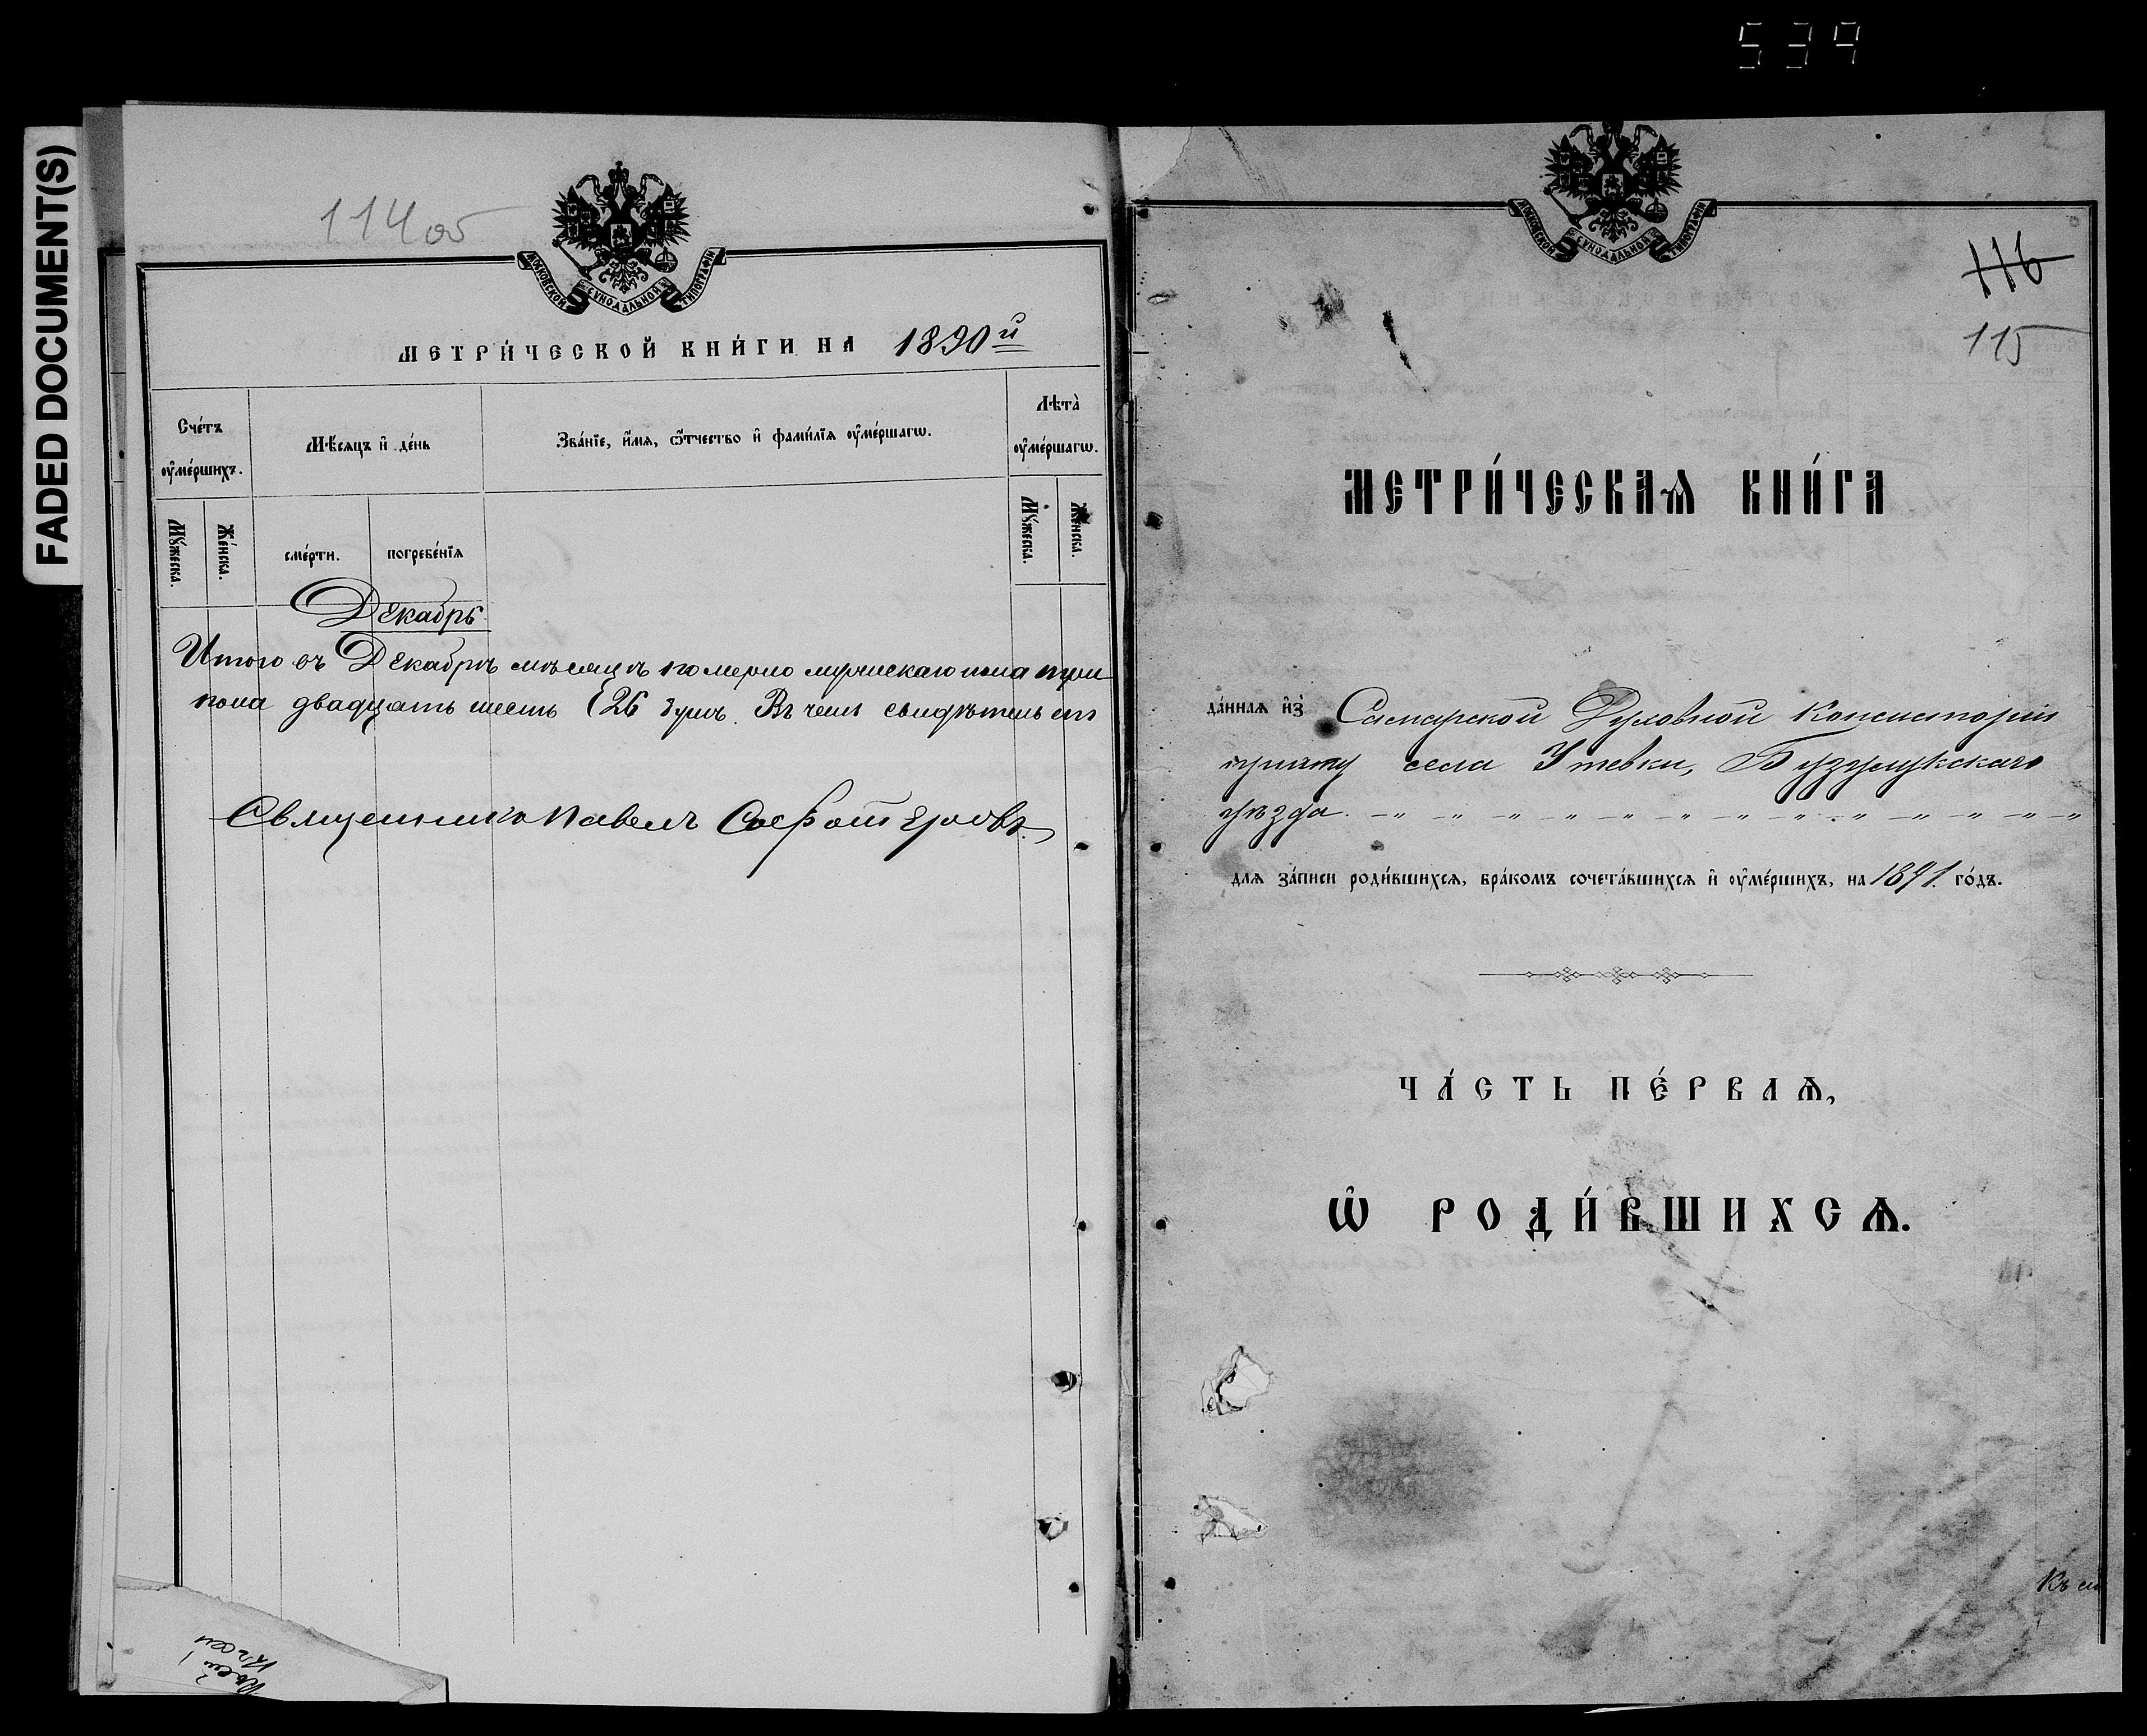 539
FADED DOCUMENT(S)
114об
МОСКОВСКОЙ СѴНОДАЛЬНОЙ ТИПОГРАФІИ
МЕТРИ́ЧЕСКОЙ КНИ́ГИ НА 1890й
Сче́тъ ᲂу҆ме́ршихъ.
Мѣ́сяцъ и҆ де́нь
Зва́нїе, и҆́мѧ, ѻ҆́тчество и҆ фами́лїѧ ᲂу҆ме́ршагѡ.
Лѣта̀ ᲂу҆ме́ршагѡ.
Мꙋ́жеска.
Же́нска.
сме́рти.
погребе́нїѧ
Мꙋ́жеска.
Же́нска.
Декабрь
Итого въ Декабрѣ мѣсяцѣ померло мужескаго пола три
пола двадцать шесть (26 душъ. Въ чемъ свидѣтельст
Священникъ Павелъ
МОСКОВСКОЙ СѴНОДАЛЬНОЙ ТИПОГРАФІИ
116
115
МЕТРИ́ЧЕСКАѦ КНИ́ГА
да́ннаѧ и҆з̾ Самарской Духовной Консисторіи
причту села Утевки, Бузулукскаго
уѣзда.
длѧ за́писи роди́вшихсѧ, бра́комъ сочета́вшихсѧ и҆ ᲂу҆ме́ршихъ, на 1891. го́дъ.
ЧА́СТЬ ПЕ́РВАѦ,
Ѡ҆ РОДИ́ВШИХСѦ.